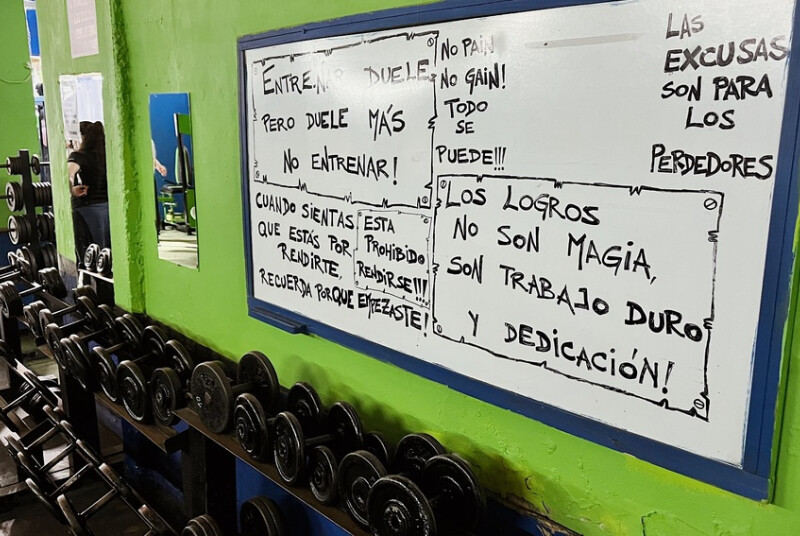 ENTRENAR DUELE
PERO DUELE MÁS
NO ENTRENAR!
NO PAIN
NO GAIN!
TODO
SE
PUEDE!!!
LAS
EXCUSAS
SON PARA
LOS
PERDEDORES
CUANDO SIENTAS
QUE ESTÁS POR
RENDIRTE,
RECUERDA PORQUE EMPEZASTE!
ESTA
PROHIBIDO
RENDIRSE!!!
LOS LOGROS
NO SON MAGIA,
SON TRABAJO DURO
Y DEDICACIÓN!